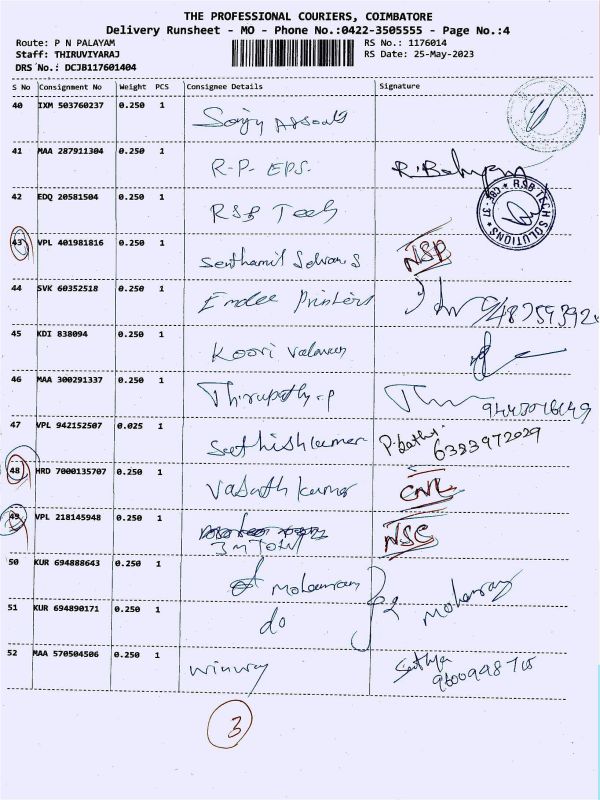 THE PROFESSIONAL COURIERS, COIMBATORE
Delivery Runsheet - MO - Phone No.:0422-3505555 - Page No.:4
Route: P N PALAYAM
Staff: THIRUVIYARAJ
DRS No.: DCJB117601404
RS No.: 1176014
RS Date: 25-May-2023
S No Consignment No Weight PCS Consignee Details Signature
40 IXM 503760237 0.250 1
41 MAA 287911304 0.250 1 R-P- EPS.
42 EDQ 20581504 0.250 1 RSB Tech
RSB TECH SOLUTIONS CBE-37
43 VPL 401981816 0.250 1 Senthamil Selvan S NSP
44 SVK 60352518 0.250 1 Emdee Printers
45 KDI 838094 0.250 1 Koori Valavan
46 MAA 300291337 0.250 1 Thirupathy.P
47 VPL 942152507 0.025 1 Sathishkumar 6383972029
48 HRD 7000135707 0.250 1 Vasanth kumar CNL
49 VPL 218145948 0.250 1 NSC
50 KUR 694888643 0.250 1 Mohanraj 2 Mohanraj
51 KUR 694890171 0.250 1 do
52 MAA 570504506 0.250 1 winway Sathya
3